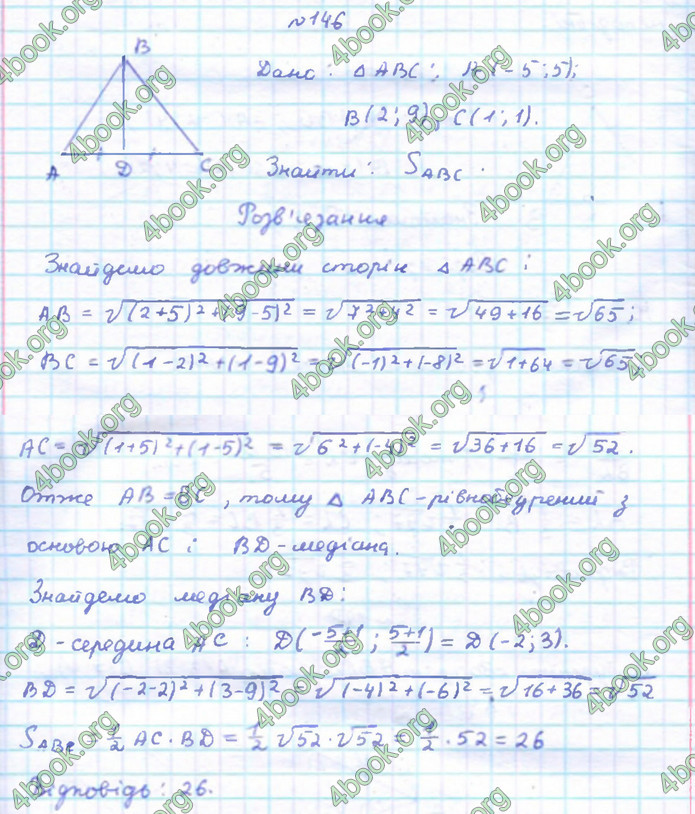 №146
B
Дано: △ABC; A(-5;5);
B(2;9) C(1;1).
A D C
Знайти: S_ABC.
Розв'язання
Знайдемо довжини сторін △ABC:
AB = √((2+5)²+(9-5)²) = √(7²+4²) = √(49+16) = √65;
BC = √((1-2)²+(1-9)²) = √((-1)²+(-8)²) = √(1+64) = √65;
AC = √((1+5)²+(1-5)²) = √(6²+(-4)²) = √(36+16) = √52.
Отже AB = BC, тому △ ABC - рівнобедрений з
основою AC і BD - медіана.
Знайдемо медіану BD:
D - середина AC: D((-5+1)/2; (5+1)/2) = D(-2; 3).
BD = √((-2-2)²+(3-9)²) = √((-4)²+(-6)²) = √(16+36) = √52
S_ABC = 1/2 AC · BD = 1/2 √52 · √52 = 1/2 · 52 = 26
Відповідь: 26.
4book.org